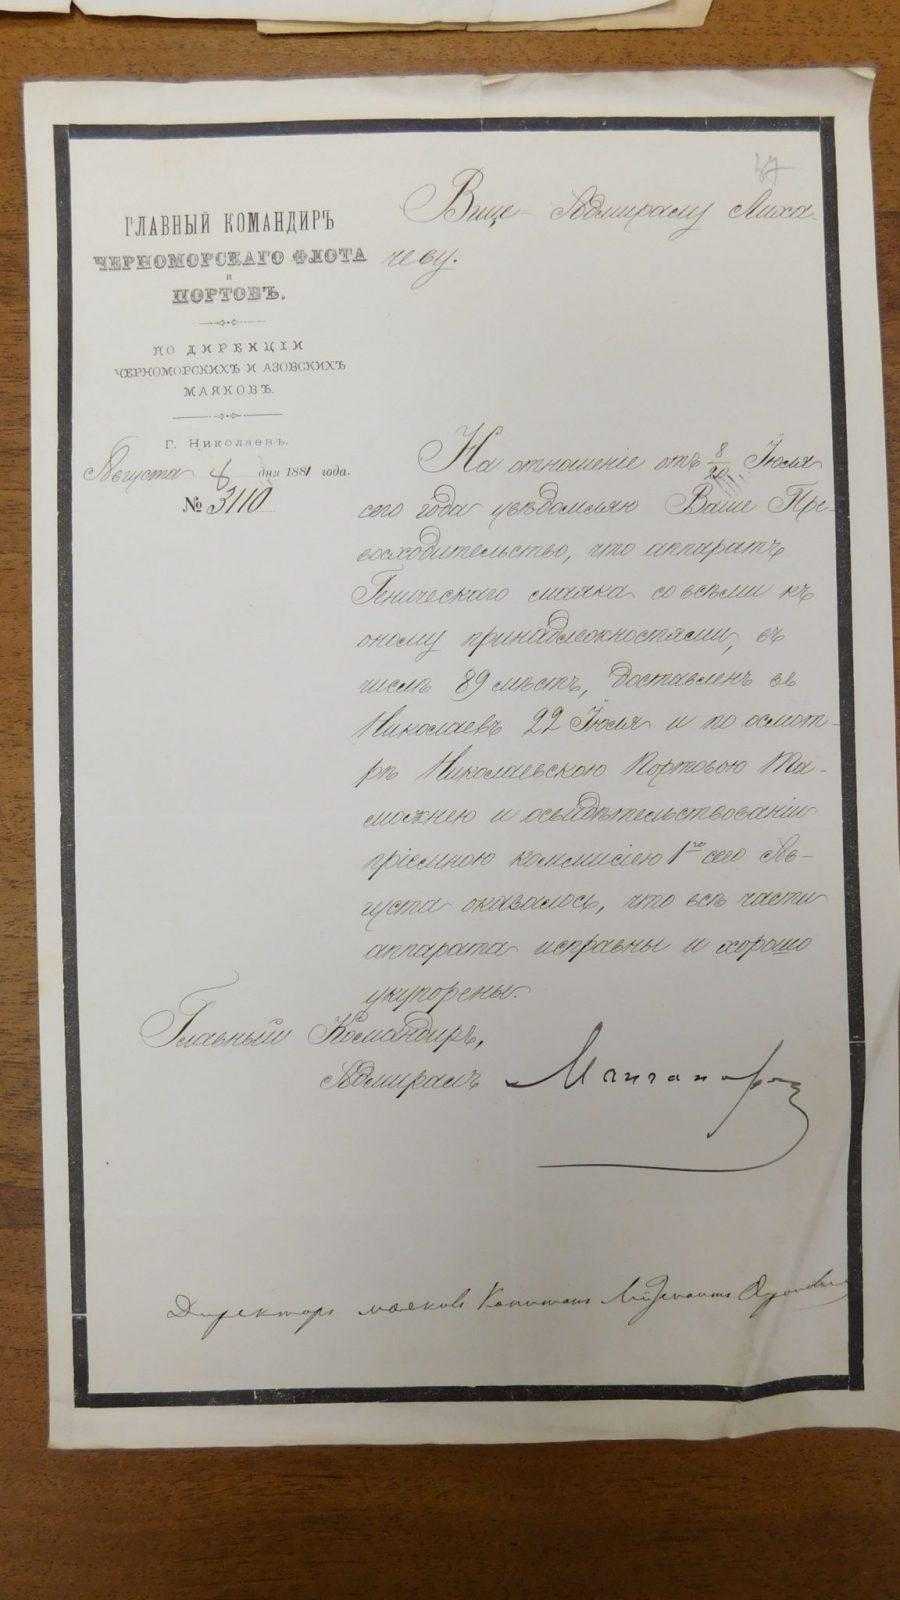 37
ГЛАВНЫЙ КОМАНДИРЪ
ЧЕРНОМОРСКАГО ФЛОТА
и
ПОРТОВЪ.
ПО ДИРЕКЦІИ
ЧЕРНОМОРСКИХЪ И АЗОВСКИХЪ
МАЯКОВЪ.
Г. Николаевъ.
Августа 8 дня 1881 года.
№ 3110
Вице-Адмиралу Лиха-
чеву.
На отношеніе отъ 8/20 Іюля
сего года увѣдомляю Ваше Пре-
восходительство, что аппаратъ
Геническаго маяка со всѣми къ
оному принадлежностями, въ
числѣ 89 мѣстъ, доставленъ въ
Николаевъ 22 Іюля и по осмот-
рѣ Николаевскою Портовою Та-
можнею и освидѣтельствованіи
пріемною коммисіею 1го сего Ав-
густа оказалось, что всѣ части
аппарата исправны и хорошо
укупорены.
Главный Командиръ,
Адмиралъ Манганари
Директоръ маяковъ Капитанъ Лейтенантъ